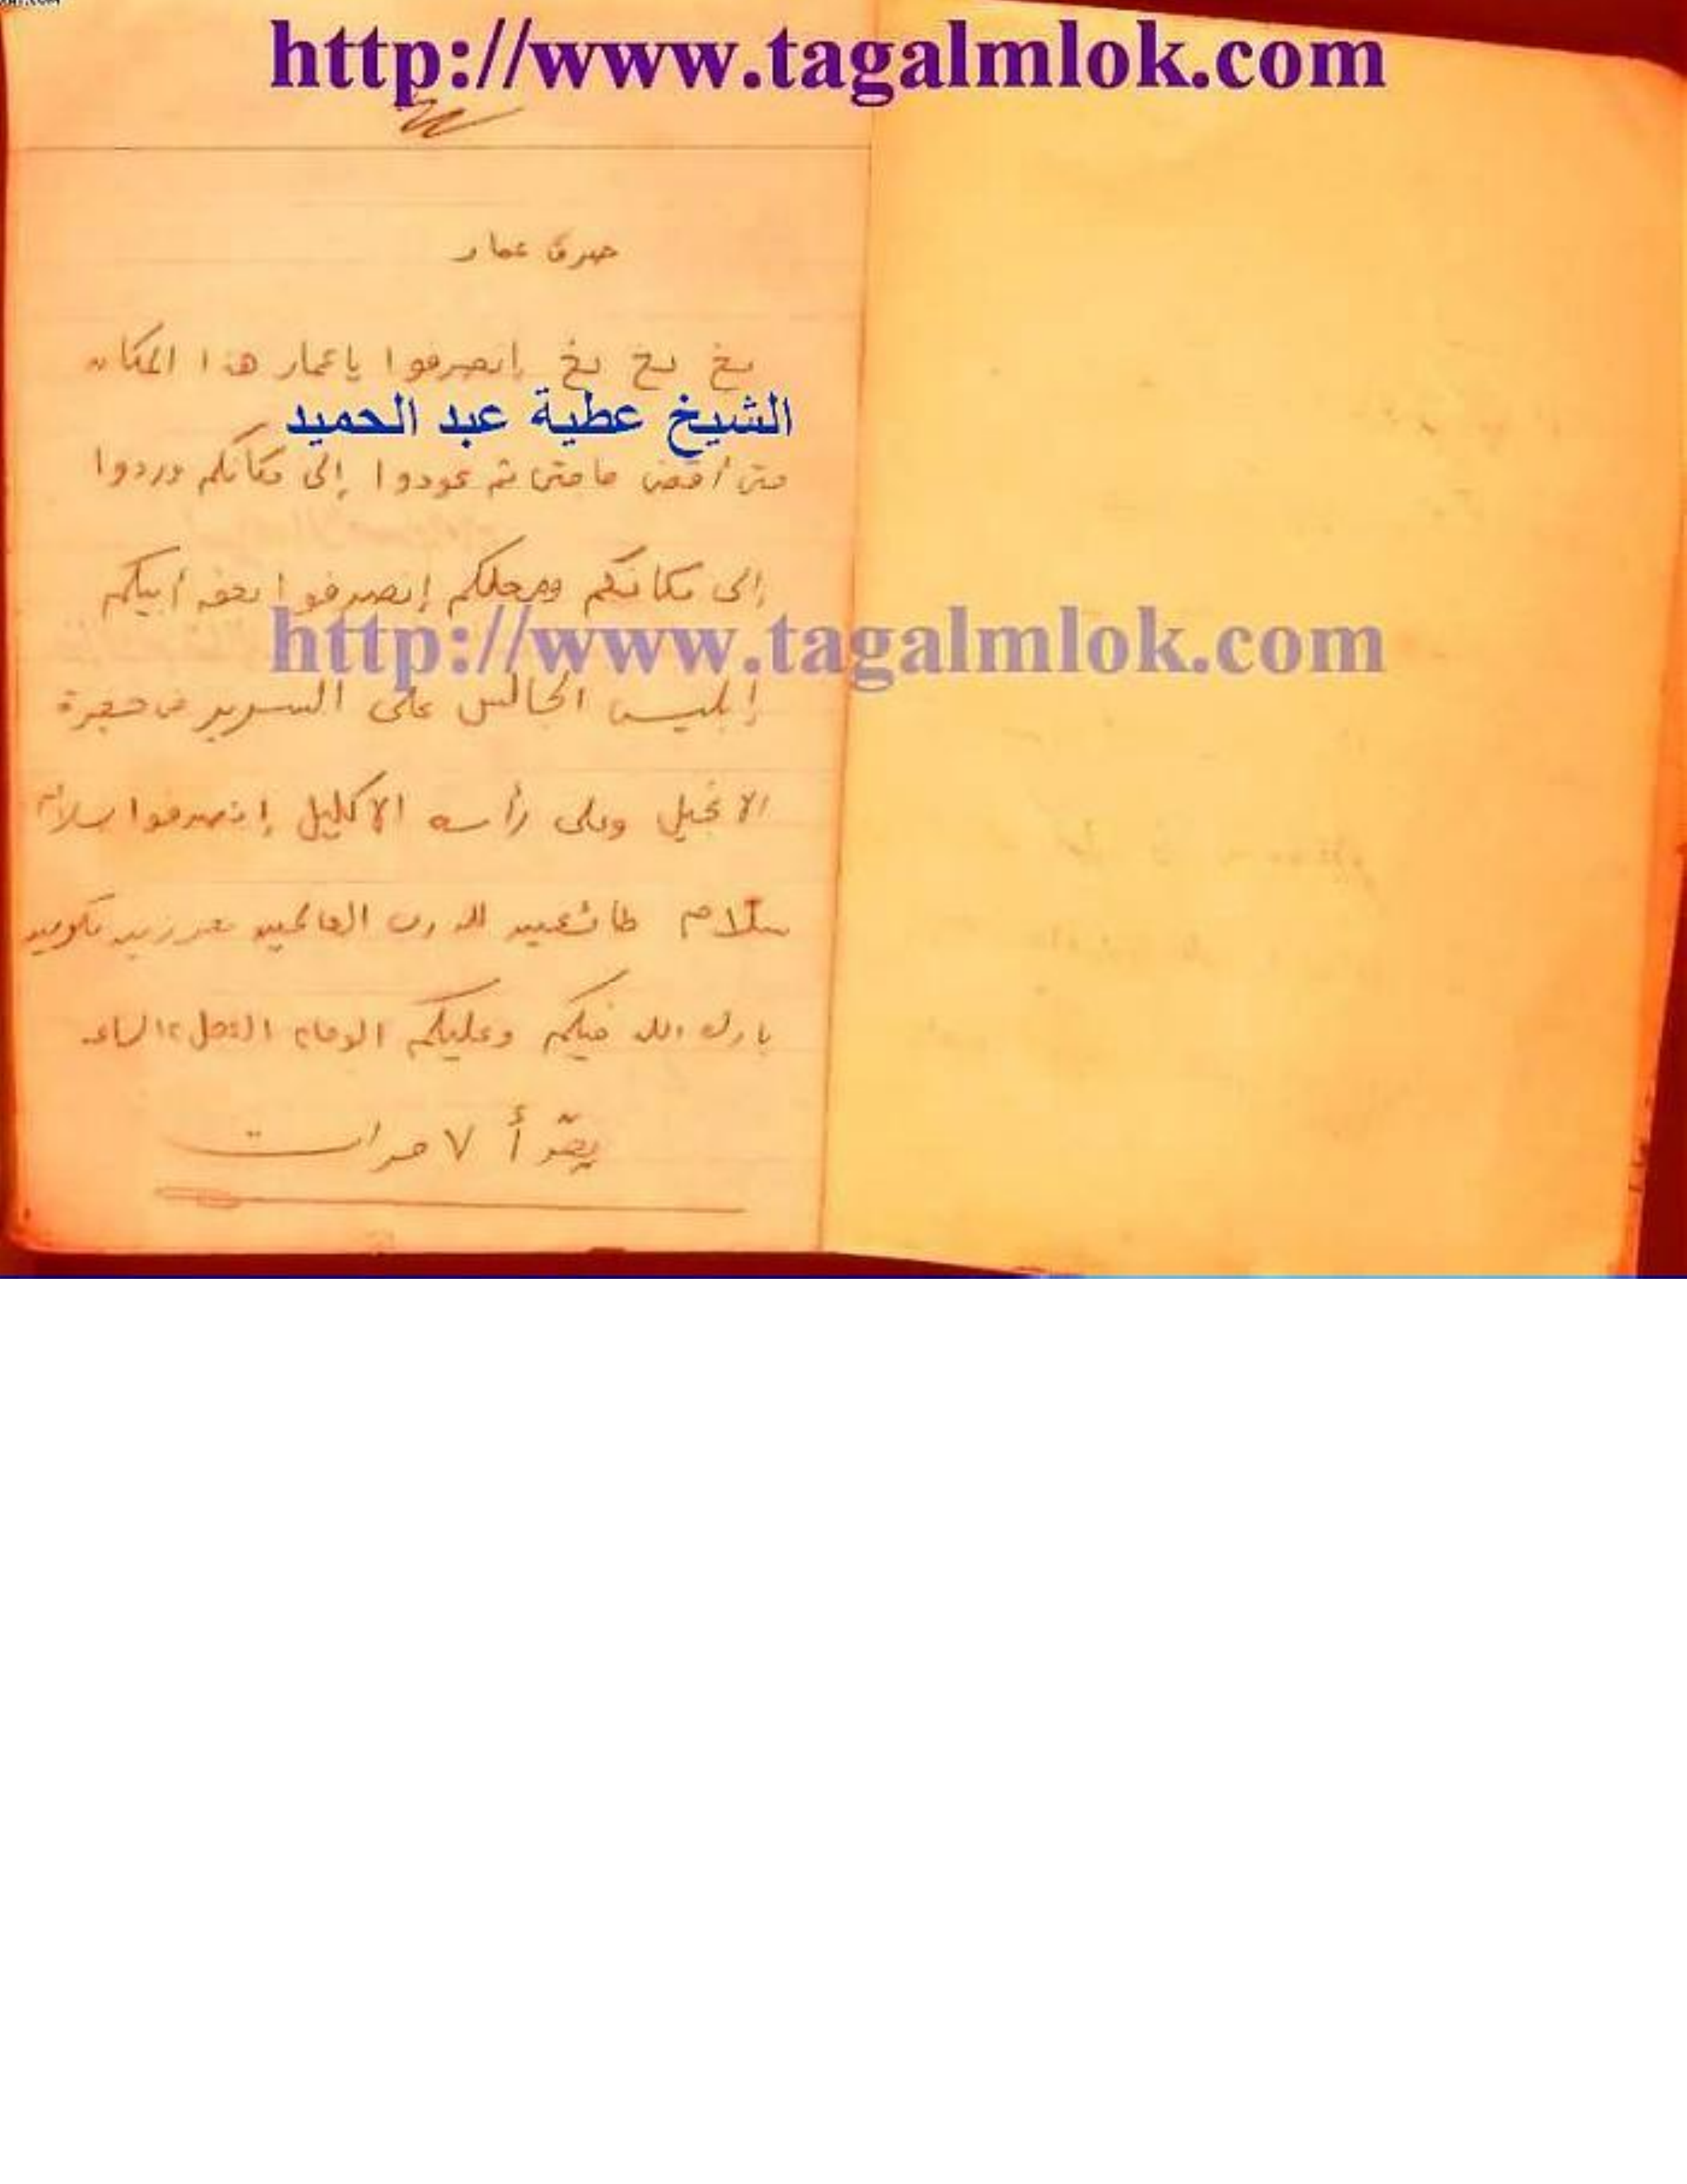 http://www.tagalmlok.com
صرف عمار
بخ بخ بخ إنصرفوا ياعمار هذا المكان
الشيخ عطية عبد الحميد
حتى أقضى حاجتى ثم عودوا إلى مكانكم وردوا
إلى مكانكم ومحلكم إنصرفوا بحق أبيكم
http://www.tagalmlok.com
إبليس الجالس على السرير حجرة
الانجيل وعلى رأسه الاكليل إنصرفوا بسلام
سلام طائعين لله رب العالمين
بارك الله فيكم وعليكم الوحا٢ العجل٢ الساعة
يقرأ ٧ مرات